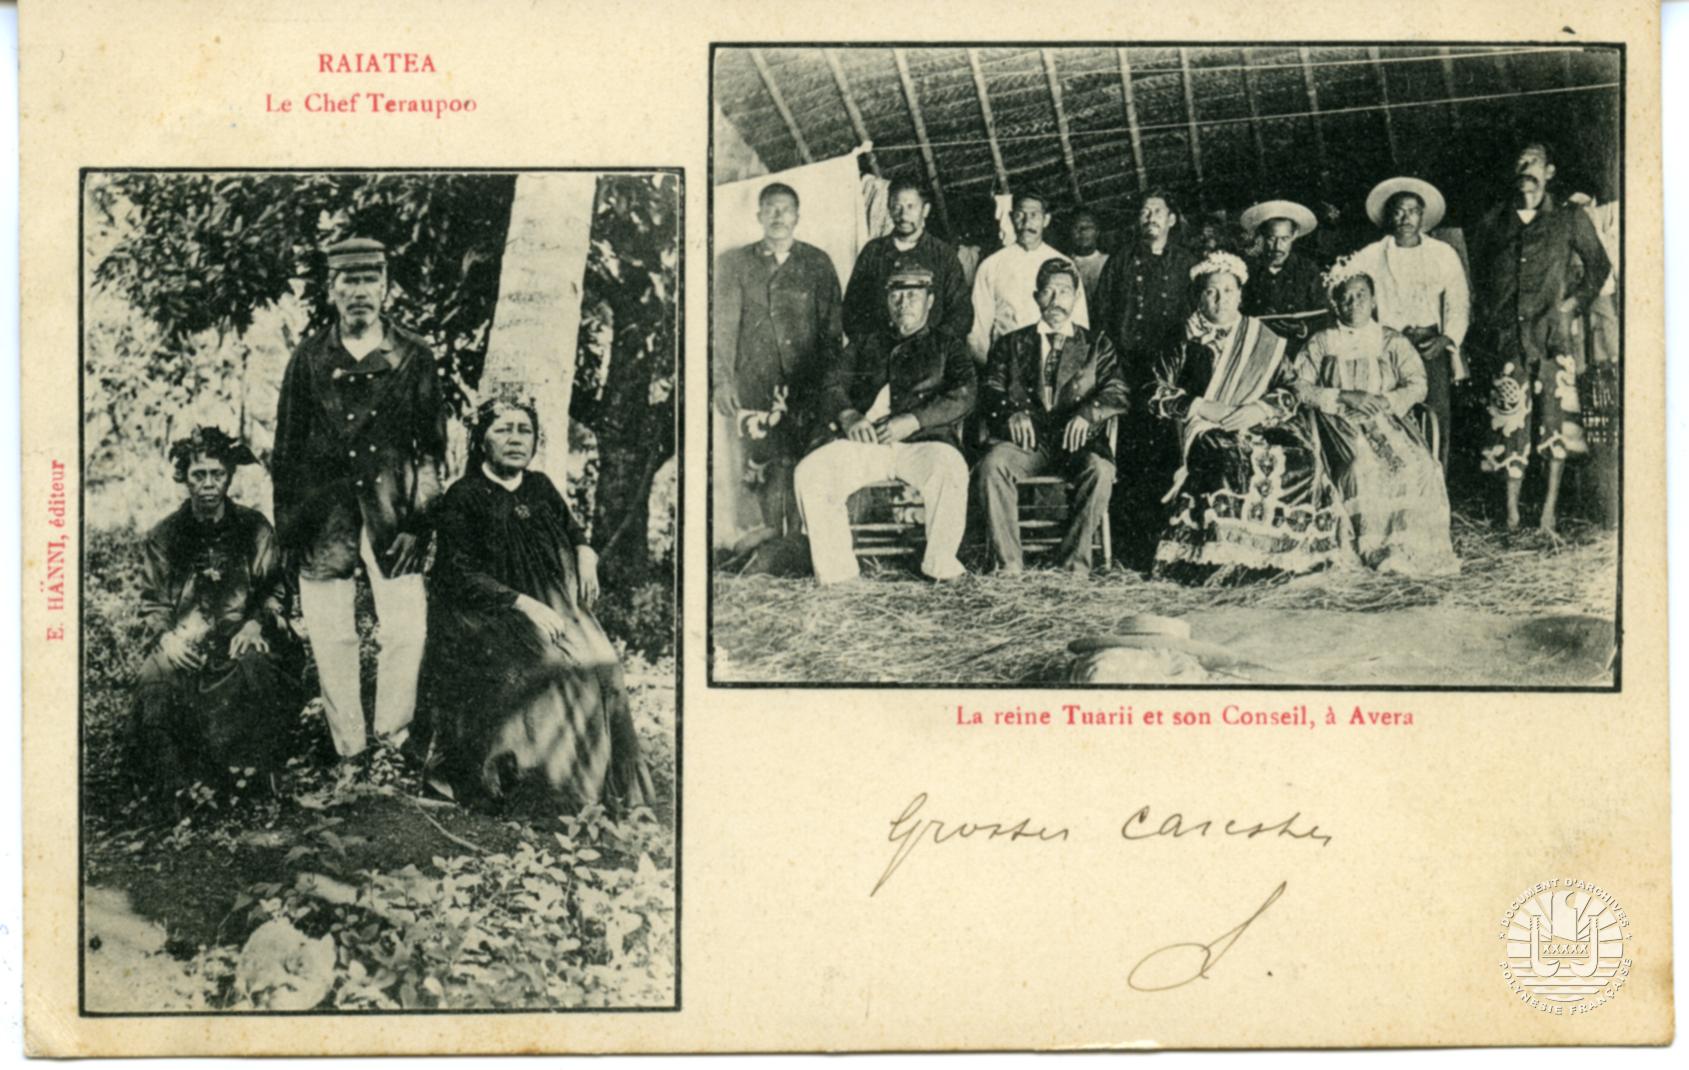 RAIATEA
Le Chef Teraupoo
E. HÄNNI, éditeur
La reine Tuarii et son Conseil, à Avera
Grosses caresses
S.
DOCUMENT D'ARCHIVES
XXXXX
POLYNESIE FRANÇAISE